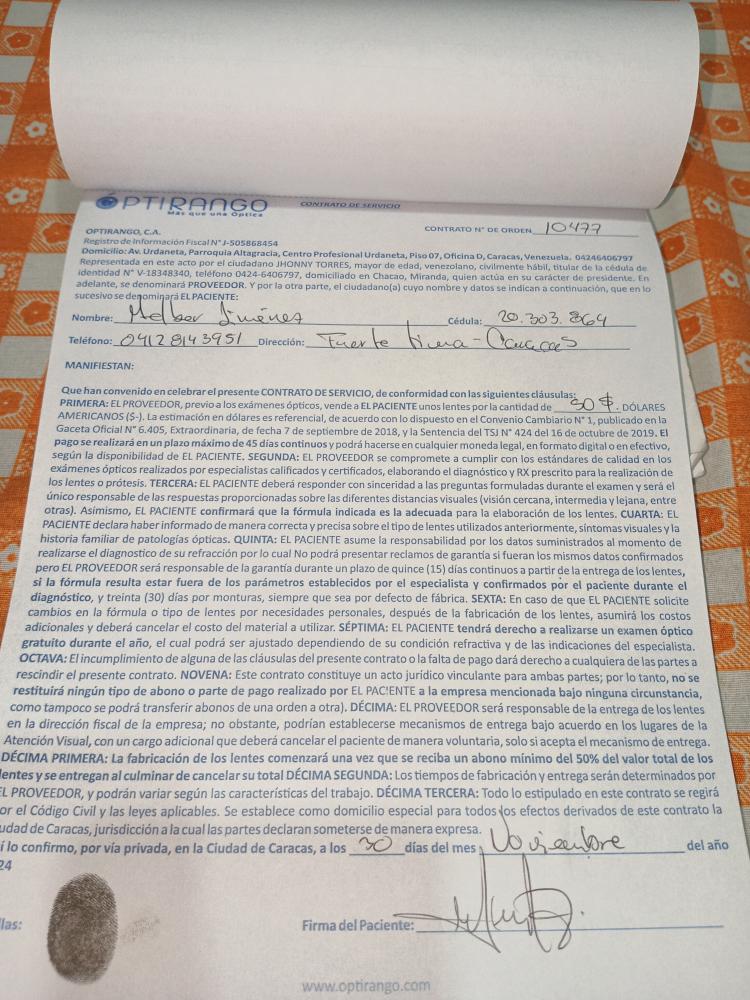 ÓPTIRANGO
Más que una Óptica
CONTRATO DE SERVICIO
CONTRATO N° DE ORDEN 10477
OPTIRANGO, C.A.
Registro de Información Fiscal N° J-505868454
Domicilio: Av. Urdaneta, Parroquia Altagracia, Centro Profesional Urdaneta, Piso 07, Oficina D, Caracas, Venezuela. 04246406797
Representada en este acto por el ciudadano JHONNY TORRES, mayor de edad, venezolano, civilmente hábil, titular de la cédula de
identidad N° V-18348340, teléfono 0424-6406797, domiciliado en Chacao, Miranda, quien actúa en su carácter de presidente. En
adelante, se denominará PROVEEDOR. Y por la otra parte, el ciudadano(a) cuyo nombre y datos se indican a continuación, que en lo
sucesivo se denominará EL PACIENTE:
Nombre: Melber Jiménez Cédula: 20.303.864
Teléfono: 04128143951 Dirección: Fuerte tiuna - Caracas
MANIFIESTAN:
Que han convenido en celebrar el presente CONTRATO DE SERVICIO, de conformidad con las siguientes cláusulas:
PRIMERA: EL PROVEEDOR, previo a los exámenes ópticos, vende a EL PACIENTE unos lentes por la cantidad de 50 $. DÓLARES
AMERICANOS ($-). La estimación en dólares es referencial, de acuerdo con lo dispuesto en el Convenio Cambiario N° 1, publicado en la
Gaceta Oficial N° 6.405, Extraordinaria, de fecha 7 de septiembre de 2018, y la Sentencia del TSJ N° 424 del 16 de octubre de 2019. El
pago se realizará en un plazo máximo de 45 días continuos y podrá hacerse en cualquier moneda legal, en formato digital o en efectivo,
según la disponibilidad de EL PACIENTE. SEGUNDA: EL PROVEEDOR se compromete a cumplir con los estándares de calidad en los
exámenes ópticos realizados por especialistas calificados y certificados, elaborando el diagnóstico y RX prescrito para la realización de
los lentes o prótesis. TERCERA: EL PACIENTE deberá responder con sinceridad a las preguntas formuladas durante el examen y será el
único responsable de las respuestas proporcionadas sobre las diferentes distancias visuales (visión cercana, intermedia y lejana, entre
otras). Asimismo, EL PACIENTE confirmará que la fórmula indicada es la adecuada para la elaboración de los lentes. CUARTA: EL
PACIENTE declara haber informado de manera correcta y precisa sobre el tipo de lentes utilizados anteriormente, síntomas visuales y la
historia familiar de patologías ópticas. QUINTA: EL PACIENTE asume la responsabilidad por los datos suministrados al momento de
realizarse el diagnostico de su refracción por lo cual No podrá presentar reclamos de garantía si fueran los mismos datos confirmados
pero EL PROVEEDOR será responsable de la garantía durante un plazo de quince (15) días continuos a partir de la entrega de los lentes,
si la fórmula resulta estar fuera de los parámetros establecidos por el especialista y confirmados por el paciente durante el
diagnóstico, y treinta (30) días por monturas, siempre que sea por defecto de fábrica. SEXTA: En caso de que EL PACIENTE solicite
cambios en la fórmula o tipo de lentes por necesidades personales, después de la fabricación de los lentes, asumirá los costos
adicionales y deberá cancelar el costo del material a utilizar. SÉPTIMA: EL PACIENTE tendrá derecho a realizarse un examen óptico
gratuito durante el año, el cual podrá ser ajustado dependiendo de su condición refractiva y de las indicaciones del especialista.
OCTAVA: El incumplimiento de alguna de las cláusulas del presente contrato o la falta de pago dará derecho a cualquiera de las partes a
rescindir el presente contrato. NOVENA: Este contrato constituye un acto jurídico vinculante para ambas partes; por lo tanto, no se
restituirá ningún tipo de abono o parte de pago realizado por EL PACIENTE a la empresa mencionada bajo ninguna circunstancia,
como tampoco se podrá transferir abonos de una orden a otra). DÉCIMA: EL PROVEEDOR será responsable de la entrega de los lentes
en la dirección fiscal de la empresa; no obstante, podrían establecerse mecanismos de entrega bajo acuerdo en los lugares de la
Atención Visual, con un cargo adicional que deberá cancelar el paciente de manera voluntaria, solo si acepta el mecanismo de entrega.
DÉCIMA PRIMERA: La fabricación de los lentes comenzará una vez que se reciba un abono mínimo del 50% del valor total de los
lentes y se entregan al culminar de cancelar su total DÉCIMA SEGUNDA: Los tiempos de fabricación y entrega serán determinados por
EL PROVEEDOR, y podrán variar según las características del trabajo. DÉCIMA TERCERA: Todo lo estipulado en este contrato se regirá
or el Código Civil y las leyes aplicables. Se establece como domicilio especial para todos los efectos derivados de este contrato la
udad de Caracas, jurisdicción a la cual las partes declaran someterse de manera expresa.
í lo confirmo, por vía privada, en la Ciudad de Caracas, a los 30 días del mes Noviembre del año
24
llas:
Firma del Paciente:
www.optirango.com